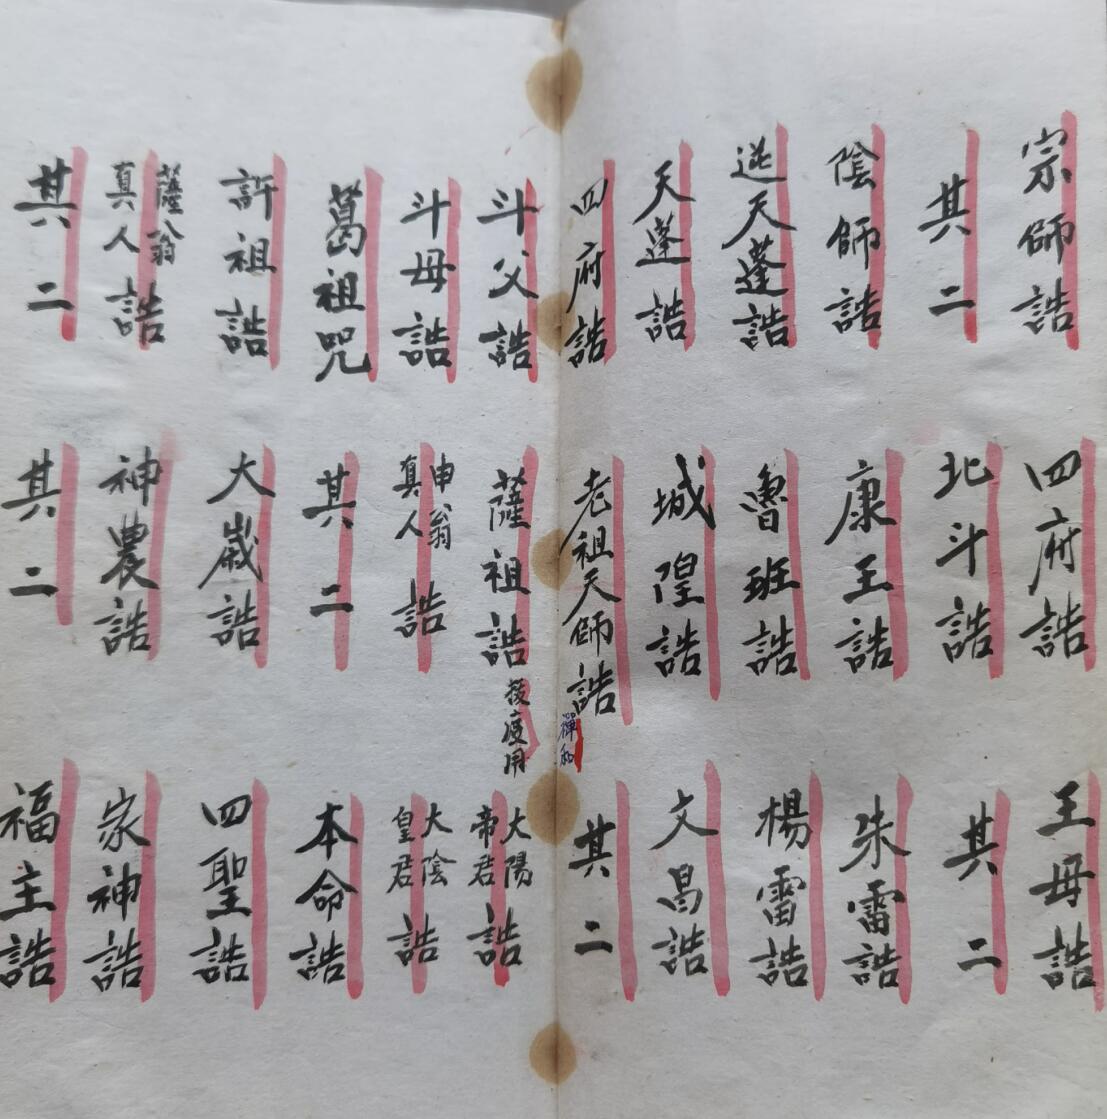 宗師誥
其二
陰師誥
天蓬誥
天蓬誥
四府誥
四府誥
北斗誥
康王誥
魯班誥
城隍誥
老祖天師誥
禪和
王母誥
其二
朱雷誥
楊雷誥
文昌誥
其二
斗父誥
斗母誥
葛祖咒
許祖誥
薩翁真人誥
其二
薩祖誥
申翁真人誥
其二
大歲誥
神農誥
其二
大陽帝君誥
大陰皇君誥
本命誥
四聖誥
家神誥
福主誥